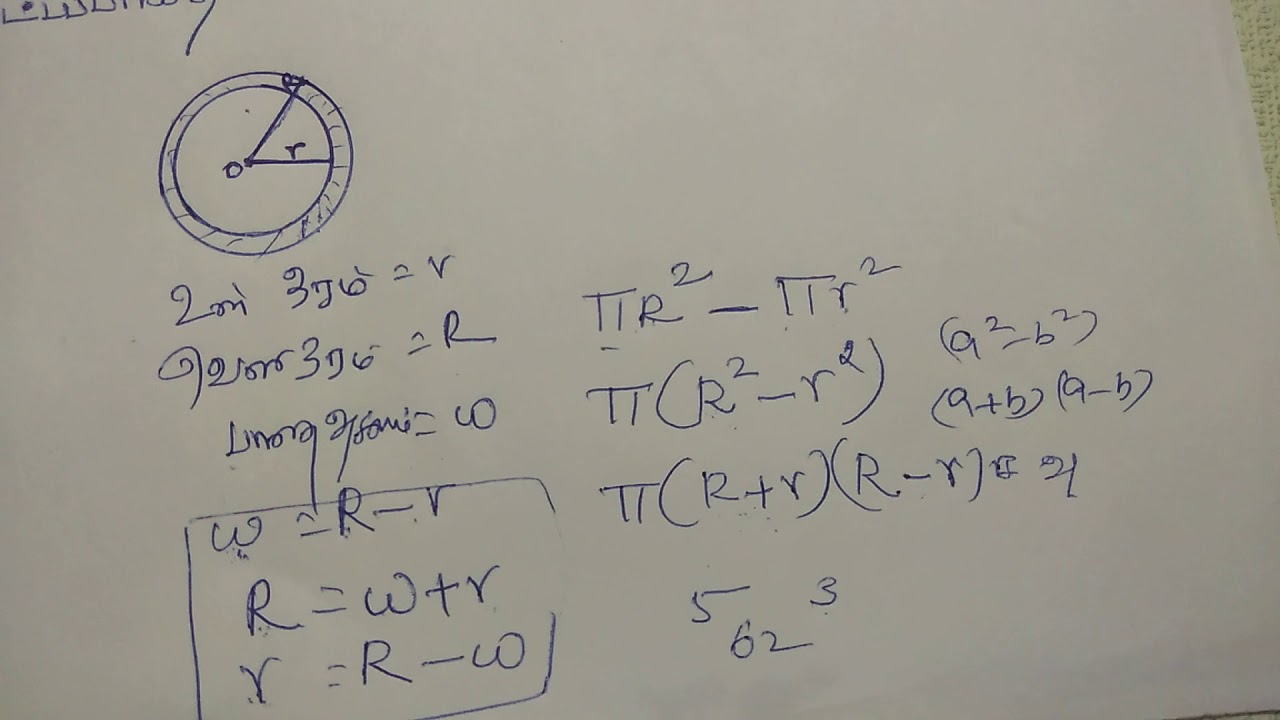 r
O
உள் ஆரம் = r
வெளி ஆரம் = R
பாதை அகலம் = ω
ω = R - r
R = ω + r
r = R - ω
πR² - πr²
π(R² - r²)
(a² - b²)
(a+b) (a-b)
π(R+r)(R-r)
5
62
3